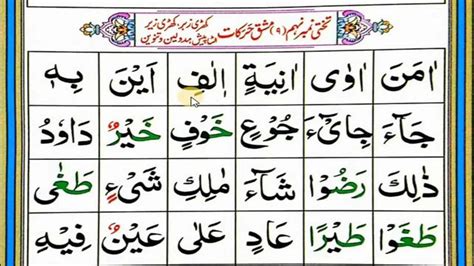 تختی نمبر نہم (۹) مشق حرکات کھڑی زبر، کھڑی زیر
الٹا پیش مدہ ولین و تنوین
اٰمَنَ اٰوٰى اٰنِيَةٍ اٖلٰفِ اَيْنَ بِهٖ
جَآءَ جِاىْٓءَ جُوْعٍ خَوْفٍ خَيْرٌ دَاوٗدُ
ذٰلِكَ رَضُوْا شَآءَ مٰلِكِ شَىْءٍ طَغٰى
طَغَوْا طَيْرًا عَادٍ عَلٰى عَيْنٌ فِيْهِ